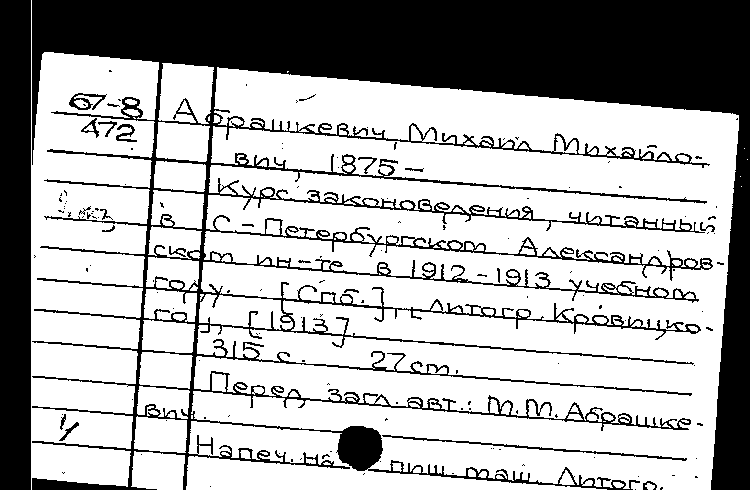 67-8
472
Абрашкевич, Михаил Михайло-
вич, 1875 –
Курс законоведения, читанный
в С-Петербургском Александров-
ском ин-те в 1912-1913 учебном
году. [Спб.], [Литогр. Кровицко-
го], [1913].
315 с. 27 cm.
Перед загл. авт.: М.М. Абрашке-
вич.
Напеч. на пиш. маш. Литогр.